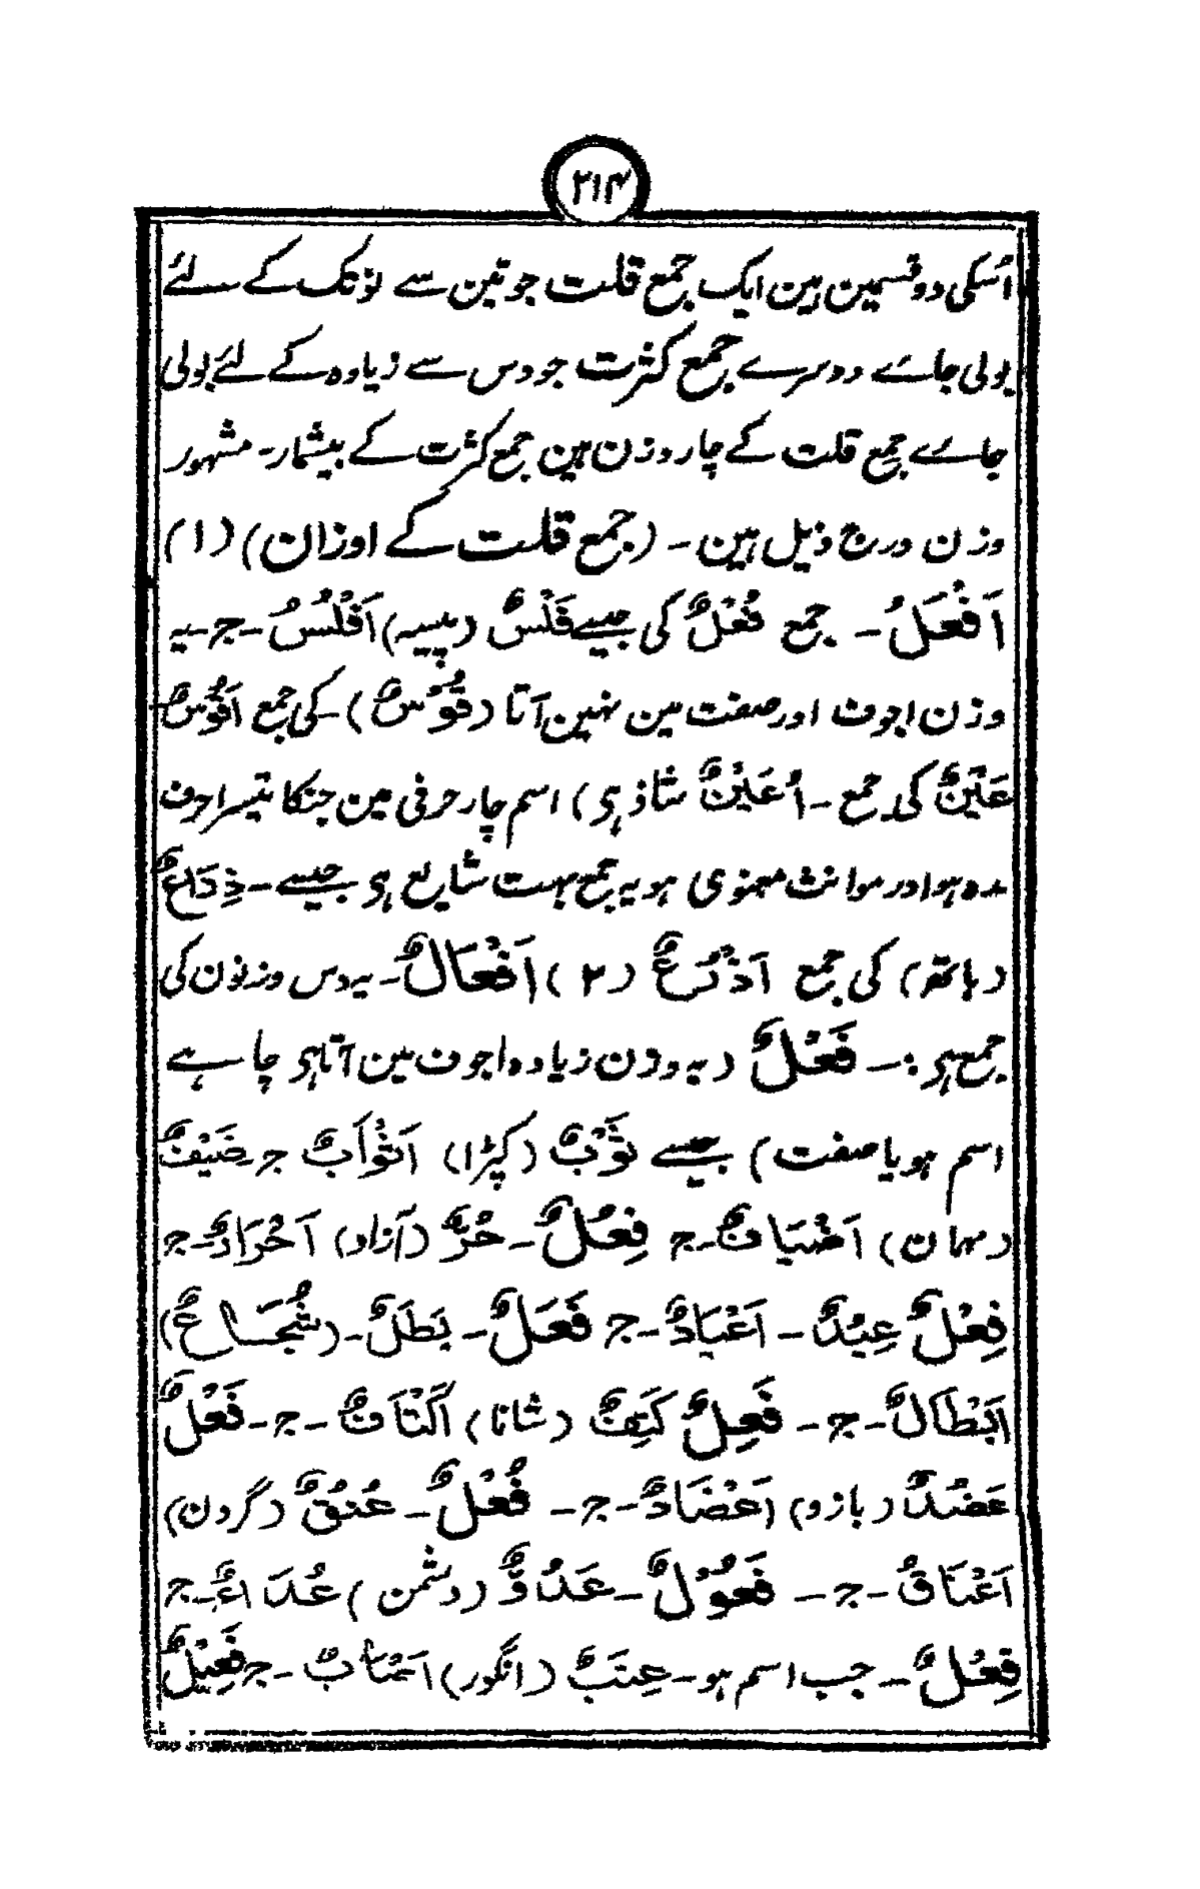 ۲۱۴
اُسکی دو قسمین ہین ایک جمع قلت جو تین سے نو تک کے لئے
بولی جاے دوسرے جمع کثرت جو دس سے زیادہ کے لئے بولی
جاے جمع قلت کے چار وزن ہین جمع کثرت کے بیشمار۔ مشہور
وزن درج ذیل ہین ۔ (جمع قلت کے اوزان) (۱)
اَفْعَلُ ۔ جمع فُعْلٌ کی جیسے فَلْسٌ (پیسہ) اَفْلُسُ ۔ ج ۔ یہ
وزن اجوف اور صفت مین نہین آتا (قُوَسٌ) ۔ کی جمع اَقُوَسٌ
عَیْنٌ کی جمع ۔ اُعَیْنٌ شاذ ہی) اسم چار حرفی مین جنکا تیسرا حرف
مدہ ہو اور موانث معنوی ہو یہ جمع بہت شایع ہی جیسے ۔ ذِدَاعٌ
(ہاتھ) کی جمع اَذْرَعٌ (۲) اَفْعَالٌ ۔ یہ دس وزنون کی
جمع ہی :۔ فَعْلٌ (یہ وزن زیادہ اجوف مین آتا ہی چاہے
اسم ہو یا صفت) جیسے ثَوْبٌ (کپڑا) اَثْوَابٌ ج ضَیْفٌ
(مہمان) اَضْیَافٌ ۔ ج فِعُلٌ ۔ حُرٌّ (آزاد) اَحْرَادٌ ۔ ج
فِعْلٌ عِیْدٌ ۔ اَعْیَادٌ ۔ ج فَعَلٌ ۔ بَطَلٌ ۔ (شُجَاعٌ)
اَبْطَالٌ ۔ ج ۔ فَعِلٌ کَتِفٌ (شانا) اَکْتَافٌ ۔ ج ۔ فَعْلٌ
عَضُدٌ (بازو) اَعْضَادٌ ۔ ج ۔ فُعْلٌ ۔ عُنُقٌ (گردن)
اَعْنَاقٌ ۔ ج ۔ فَعُوْلٌ ۔ عَدُوٌّ (دشمن) عُدَاءٌ ۔ ج
فِعُلٌ ۔ جب اسم ہو ۔ عِنَبٌ (انگور) اَعْنَابٌ ۔ ج فَعِیْلٌ